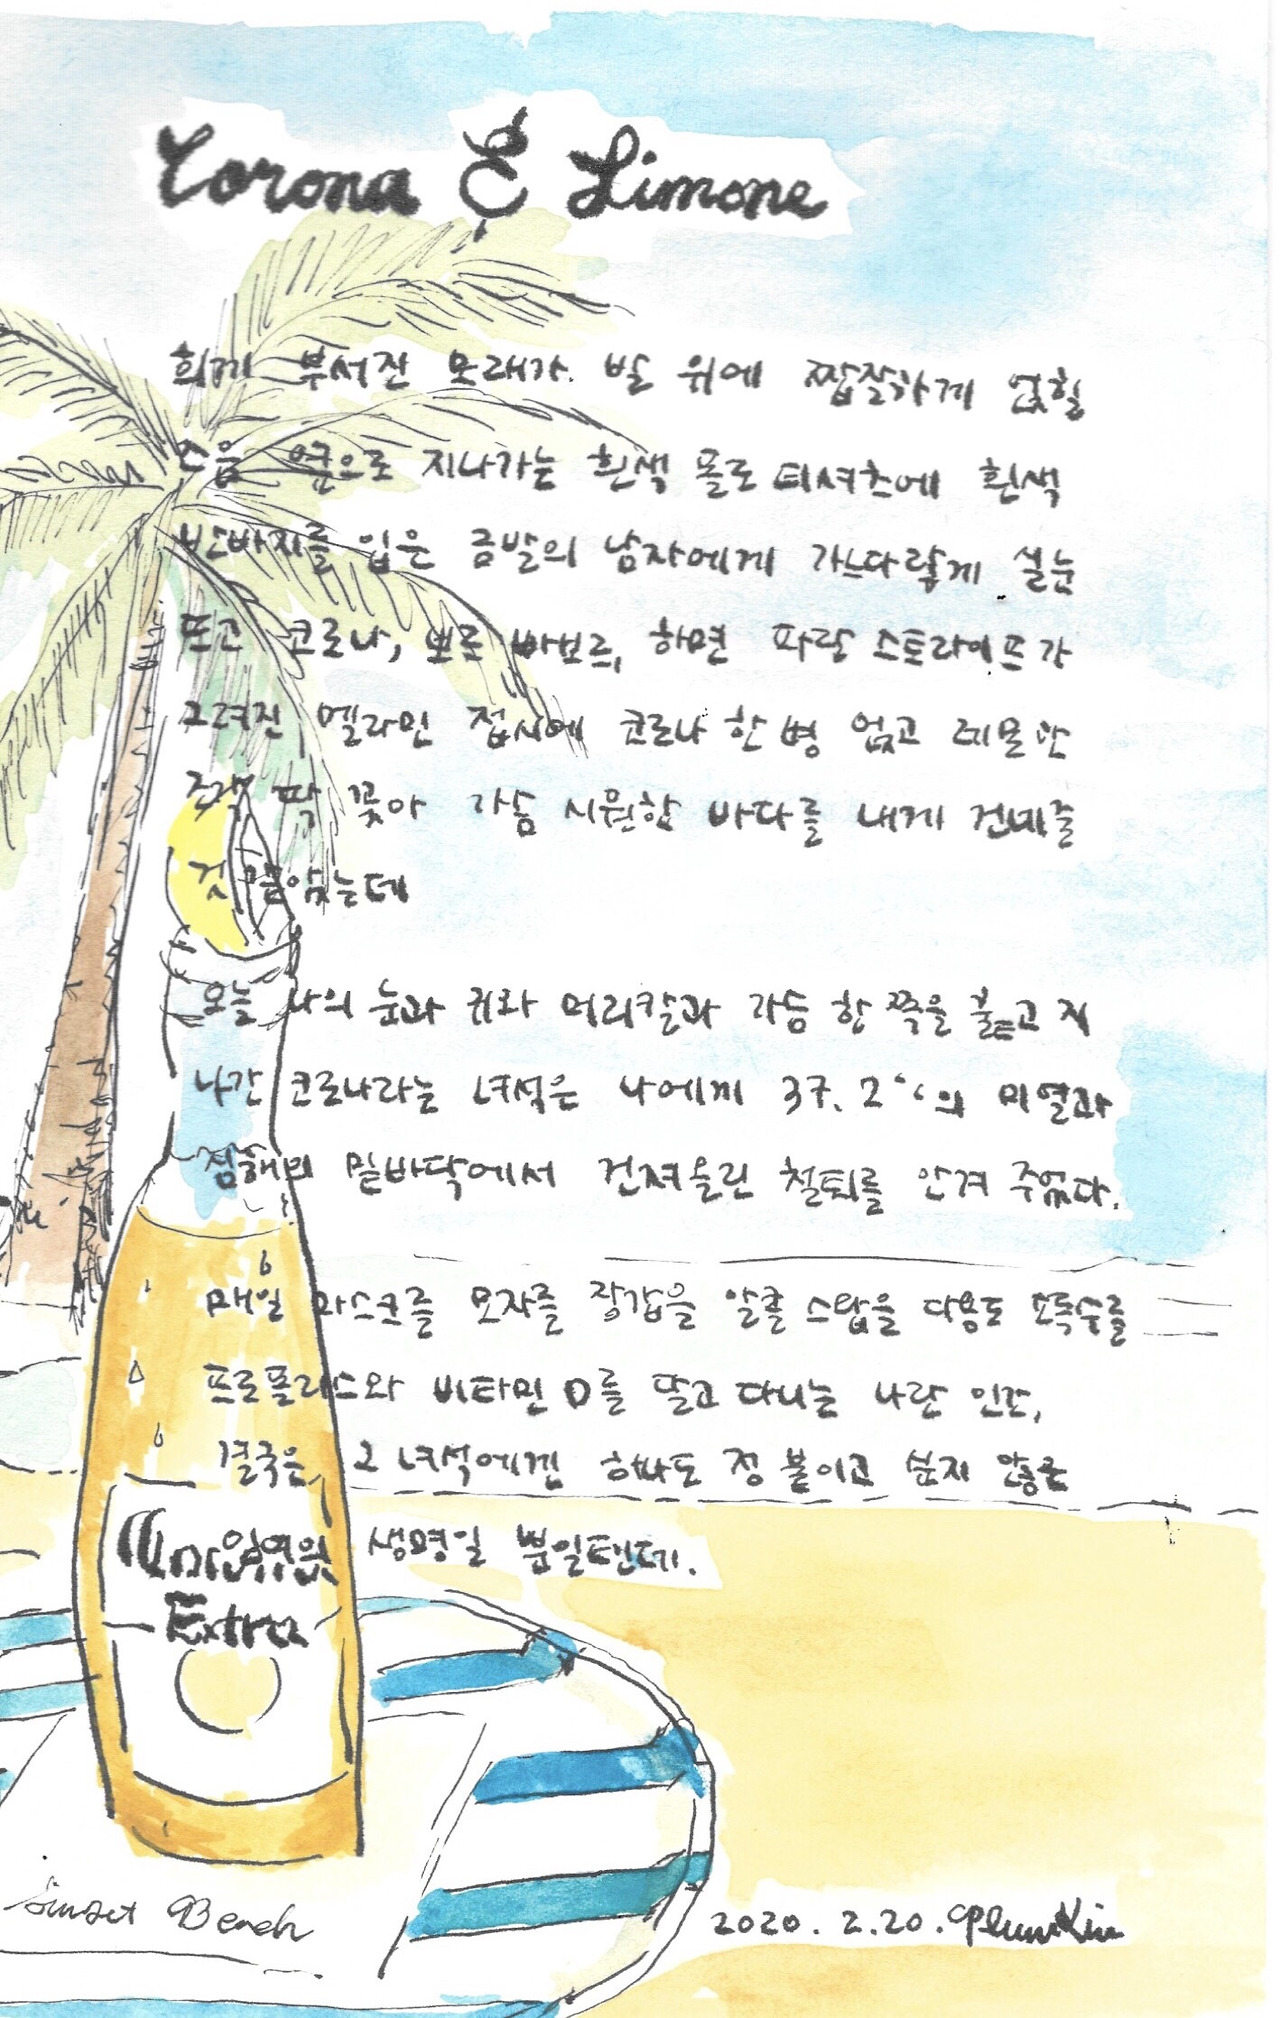 Corona E Limone
희게 부서진 모래가 발 위에 짭잘하게 얹힐
즈음 옆으로 지나가는 흰색 폴로 티셔츠에 흰색
반바지를 입은 금발의 남자에게 가느다랗게 실눈
뜨고 코로나, 뽀르 빠보르, 하면 파랑 스트라이프가
그려진 멜라민 접시에 코로나 한 병 얹고 레몬 한
조각 딱 꽂아 가슴 시원한 바다를 내게 건네줄
것 같았는데
오늘 나의 눈과 귀와 머리칼과 가슴 한 쪽을 붙들고 지
나간 코로나라는 녀석은 나에게 37.2℃의 미열과
심해의 밑바닥에서 건져올린 철퇴를 안겨 주었다.
매일 마스크를 모자를 장갑을 알콜 스왑을 다용도 소독수를
프로폴리스와 비타민 D를 달고 다니는 나란 인간,
결국은, 그 녀석에겐 하나도 정 붙이고 싶지 않은
생명일 뿐일텐데.
Extra
Sunset Beach
2020. 2. 20. Plum Kim